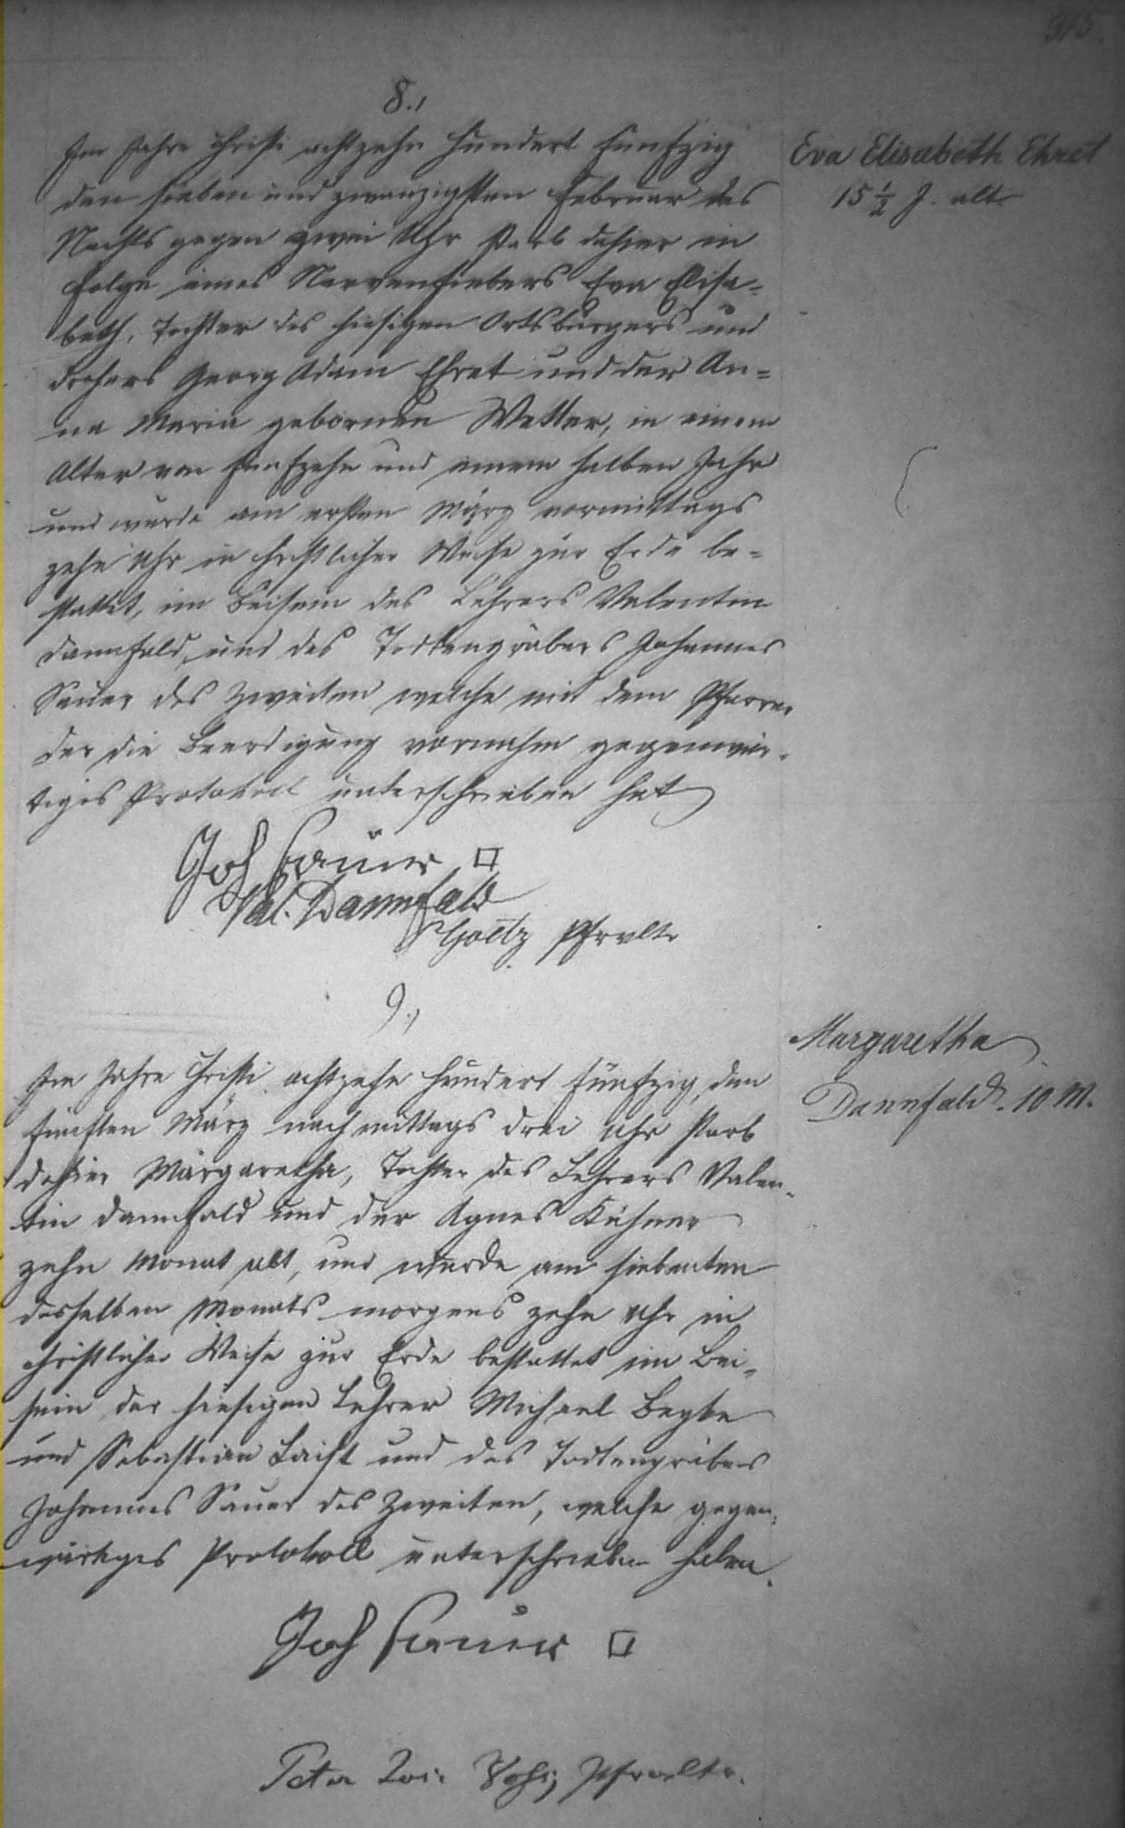 8.,
Im Jahre Christi achtzehn hundert fünfzig
den sieben und zwanzigsten Februar des
Nachts gegen zwei Uhr starb dahier in
Folge eines Nervenfiebers Eva Elisa-
beth, Tochter des hiesigen Ortsbürgers und
Georg Adam Ehret und der An-
na Maria gebornen Wetter, in einem
Alter von fünfzehn und einem halben Jahr
und wurde am ersten März vormittags
zehn Uhr in christlicher Weise zur Erde be-
stattet, im Beisein des Lehrers Valentin
Dannfald, und des Todtengräbers Johannes
Sauer des Zweiten welche mit dem Pfarrer
der die Beerdigung vornahm gegenwär-
tiges Protokoll unterschrieben hat
Joh Sauer
Val. Dannfald
Goetz Pfrvltr
Eva Elisabeth Ehret
15 1/2 J. alt
9.,
Im Jahre Christi achtzehn hundert fünfzig, den
fünften März nachmittags drei Uhr starb
dahier Margaretha, Tochter des Lehrers Valen-
tin Dannfald und der Agnes Kühner
zehn Monat alt, und wurde am siebenten
desselben Monats morgens zehn Uhr in
christlicher Weise zur Erde bestattet im Bei-
sein der hiesigen Lehrer Michael
und Sebastian und des Todtengräbers
Johannes Sauer des Zweiten, welche gegen-
wärtiges Protokoll unterschrieben haben.
Joh Sauer
Peter Pfrvltr.
Margaretha
Dannfald. 10 M.